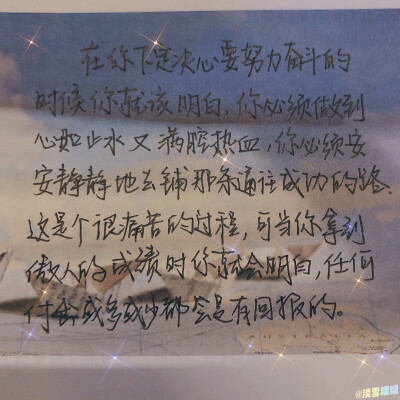 在你下定决心要努力奋斗的
时候你就该明白，你必须做到
心如止水又满腔热血，你必须安
安静静地去铺那条通往成功的路.
这是个很痛苦的过程，可当你拿到
傲人的成绩时你就会明白，任何
付出或多或少都会是有回报的。
@淡雪糯糯